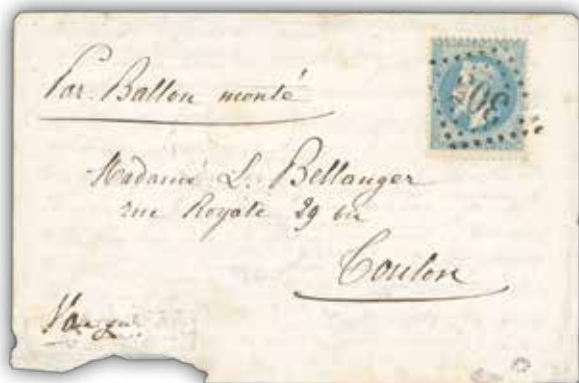 Par Ballon monté
Madame L. Bellanger
rue Royale 29 bis
Toulon